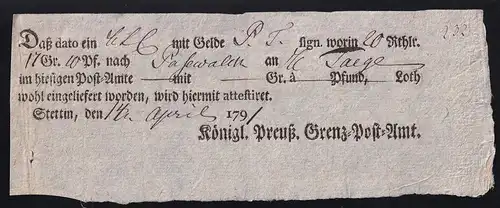 Daß dato ein mit Gelde P. T. sign. worin 20 Rthlr.
17 Gr. 10 Pf. nach Paßwalck an H Jaege
im hiesigen Post-Amte — mit — Gr. à — Pfund, — Loth
wohl eingeliefert worden, wird hiermit attestiret.
Stettin, den 14t. April 1791
Königl. Preuß. Grenz-Post-Amt.